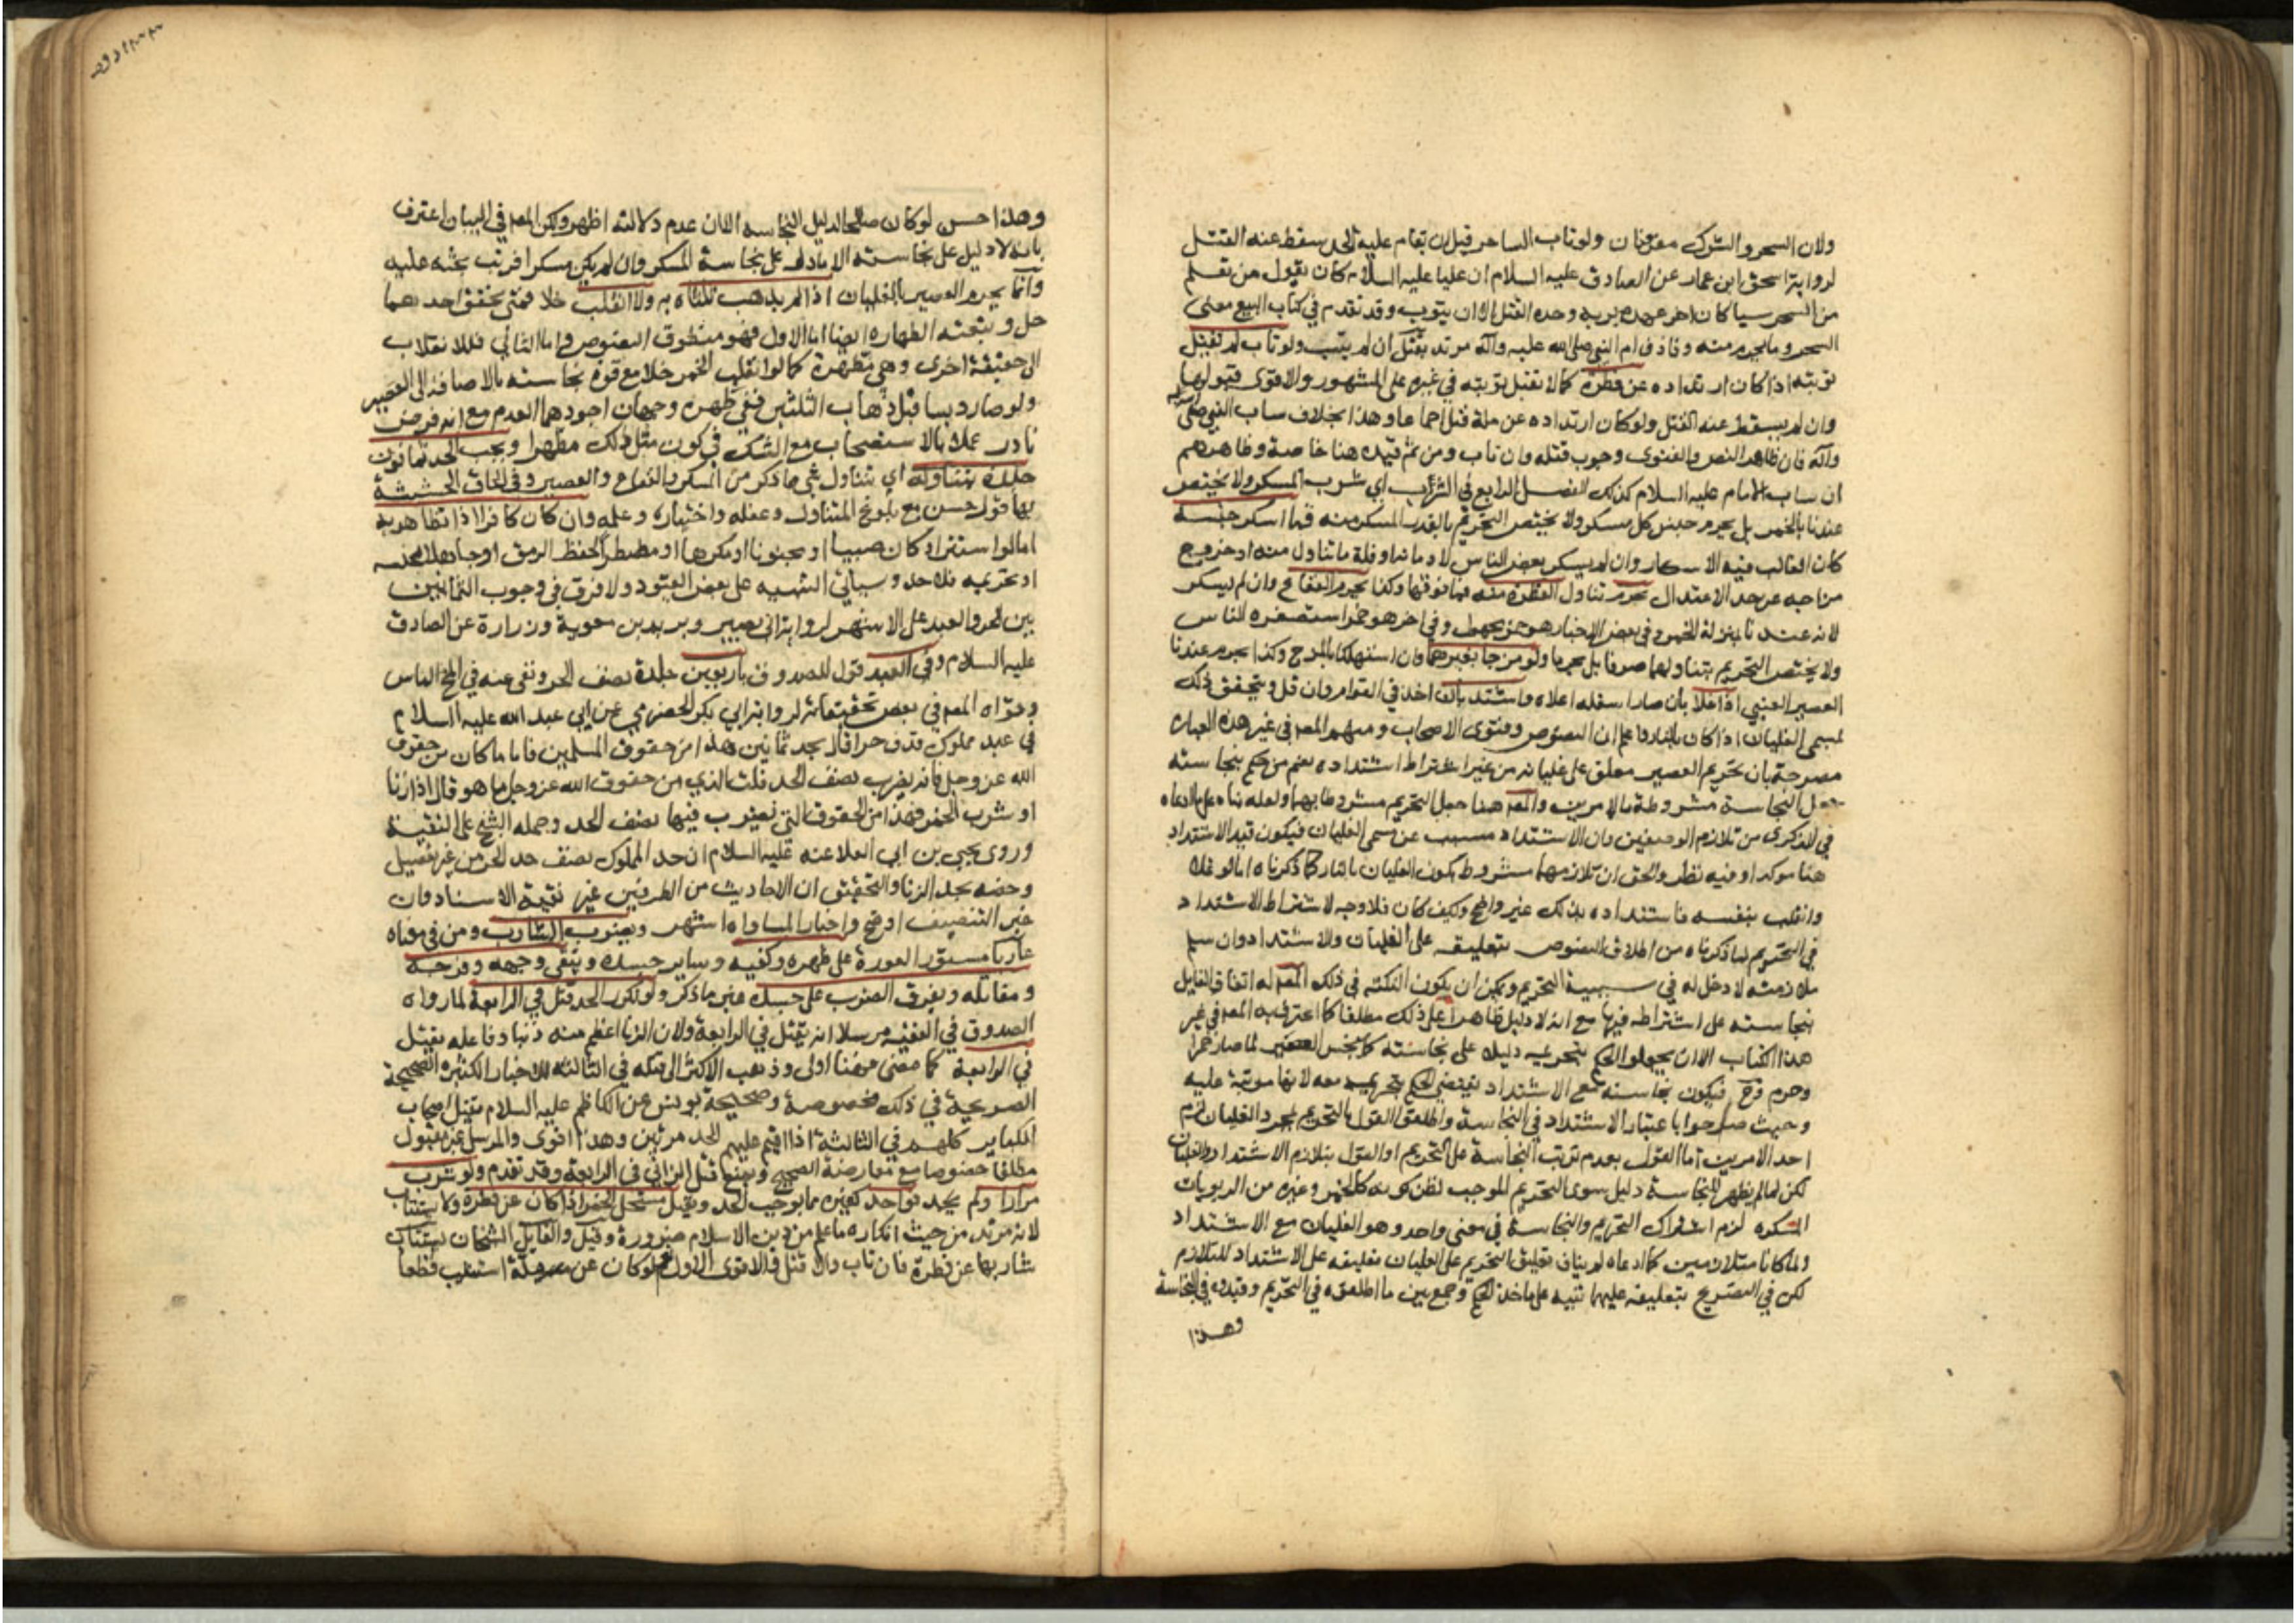 ولان السحر والشرك مقرونان ولو تاب الساحر قبل ان يقام عليه الحد سقط عنه القتل
لرواية اسحق ابن عمار عن الصادق عليه السلام ان عليا عليه السلام كان يقول من تعلم
من السحر سيا كان اخر عهده بربه وحده القتل الا ان يتوب وقد تقدم في كتاب البيع معنى
السحر وما يحرم منه وقاذف ام النبي صلى الله عليه وآله مرتد يقتل ان لم يتب ولو تاب لم تقبل
توبته اذا كان ارتداده عن فطرة كما لا تقبل توبته في غيره على المشهور والاقوى قبولها
وان لم يسقط عنه القتل ولو كان ارتداده عن ملة قبل اجماعا وهذا بخلاف ساب النبي صلى
وآله فان ظاهر النص والفتوى وجوب قتله وان تاب ومن ثم قيده هنا خاصة وظاهرهم
ان ساب الامام عليه السلام كذلك الفصل الرابع في الشرب اي شرب المسكر ولا يختص
عندنا بالخمر بل يحرم جنس كل مسكر ولا يختص التحريم بالقدر المسكر منه فما اسكر جنسه
كان الغالب فيه الاسكار وان لم يسكر بعض الناس لادمانه او قلة ما تناول منه او خروج
مزاجه عن حد الاعتدال يحرم تناول القطرة منه فما فوقها وكذا يحرم الفقاع وان لم يسكر
لانه عندنا بمنزلة الخمر وفي بعض الاخبار هو خمر مجهول وفي اخر هو خمر استصغره الناس
ولا يختص التحريم بتناولهما صرفا بل يحرما ولو مزجا بغيرهما وان استهلكا بالمزج وكذا يحرم عندنا
العصير العنبي اذا غلا بان صار اسفله اعلاه واشتد بان اخذ في القوام وان قل ويتحقق ذلك
لمسمى الغليان اذا كان بالنار واعلم ان النصوص وفتوى الاصحاب ومنهم المص في غير هذه العبارة
مصرحة بان تحريم العصير معلق على غليانه من غير اشتراط اشتداده نعم من حكم بنجاسته
جعل النجاسة مشروطة بالامرين والمص هنا جعل التحريم مشروطا بهما ولعله بناه على ما ادعاه
في الذكرى من تلازم الوصفين وان الاشتداد مسبب عن مسمى الغليان فيكون قيد الاشتداد
هنا موكدا وفيه نظر والحق ان تلازمهما مشروط بكون الغليان بالنار كما ذكرناه اما لو غلا
وانقلب بنفسه فاشتداده بذلك غير واضح وكيف كان فلا وجه لاشتراط الاشتداد
في التحريم لما ذكرناه من اطلاق النصوص بتعليقه على الغليان والاشتداد وان سلم
ملازمته لا دخل له في سببية التحريم ويمكن ان يكون النكتة في ذلك المص له اتفاق القايل
بنجاسته على اشتراطه فيها مع انه لا دليل ظاهرا على ذلك مطلقا كما اعترف به المص في غير
هذا الكتاب الا ان يجعلوا الحكم بتحريمه دليلا على نجاسته كما ينجس العصير لما صار خمرا
وحرم وح فيكون نجاسته مع الاشتداد يقتضي الحكم بتحريمه معه لانها مرتبة عليه
وحيث صرحوا باعتبار الاشتداد في النجاسة واطلقوا القول بالتحريم بمجرد الغليان لزم
احد الامرين اما القول بعدم ترتب النجاسة على التحريم او القول بتلازم الاشتداد والغليان
لكن لما لم يظهر للنجاسة دليل سوى التحريم الموجب لظن كونه كالخمر وغيره من الربوبات
المسكره لزم اشتراك التحريم والنجاسة في معنى واحد وهو الغليان مع الاشتداد
ولما كانا متلازمين كما ادعاه لم يناف تعليق التحريم على الغليان تعليقه على الاشتداد للتلازم
لكن في التصريح بتعليقه عليهما تنبيه على ماخذ الحكم وجمع بين ما اطلقوه في التحريم وقيدوه في النجاسة
وهذا
وهذا حسن لو كان صالحا لدليل النجاسه الا ان عدم دلالته اظهر ولكن المص في البيان اعترف
بانه لا دليل على نجاسته الا ما دل على نجاسة المسكر وان لم يكن مسكرا فرتب بحثه عليه
وانما يحرم العصير بالغليان اذا لم يذهب ثلثاه به ولا انقلب خلا فمتى تحقق احدهما
حل وتبعته الطهاره ايضا اما الاول فهو منطوق النصوص واما الثاني فللانقلاب
الى حقيقة اخرى وهي مطهرة كما لو انقلب الخمر خلا مع قوة نجاسته بالاضافة الى العصير
ولو صار دبسا قبل ذهاب الثلثين ففي طهره وجهان اجودهما العدم مع انه فرض
نادر عملا بالاستصحاب مع الشك في كون مثل ذلك مطهرا ويجب الحد ثمانون
جلدة بتناوله اي تناول شي مما ذكر من المسكر والفقاع والعصير وفي الحاق الحشيشة
بها قول حسن مع بلوغ المتناول وعقله واختياره وعلمه وان كان كافرا اذا تظاهر به
اما لو استتر او كان صبيا او مجنونا او مكرها او مضطرا لحفظ الرمق او جاهلا بجنسه
او تحريمه فلا حد وسياتي التنبيه على بعض القيود ولا فرق في وجوب الثمانين
بين الحر والعبد على الاشهر لرواية ابي بصير وبريد بن معوية وزرارة عن الصادق
عليه السلام وفي العبد قول للصدوق باربعين جلدة نصف الحر ونفى عنه في الخ الباس
وقواه المص في بعض تحقيقاته لرواية ابي بكر الحضرمي عن ابي عبد الله عليه السلام
في عبد مملوك قذف حرا قال يجد ثمانين هذا من حقوق المسلمين فاما ما كان من حقوق
الله عز وجل فانه يضرب نصف الحد قلت الذي من حقوق الله عز وجل ما هو قال اذا زنا
او شرب الخمر فهذا من الحقوق التي يضرب فيها نصف الحد وحمله الشيخ على التقية
وروى يحيى بن ابي العلا عنه عليه السلام ان حد المملوك نصف حد الحر من غير تفصيل
وخصه بحد الزنا والتحقيق ان الاحاديث من الطرفين غير نقية الاسناد وان
خبر التنصيف اوضح واخبار المساواه اشهر ويضرب الشارب ومن في معناه
عاريا مستور العورة على ظهره وكتفيه وساير جسده ويتقى وجهه وفرجه
ومقاتله ويفرق الضرب على جسده غير ما ذكر ولو تكرر الحد قتل في الرابعة لما رواه
الصدوق في الفقيه مرسلا انه يقتل في الرابعة ولان الزنا اعظم منه ذنبا وفاعله يقتل
في الرابعة كما مضى فهنا اولى وذهب الاكثر الى قتله في الثالثة للاخبار الكثيره الصحيحة
الصريحة في ذلك مخصوصة وصحيحة يونس عن الكاظم عليه السلام يقتل اصحاب
الكباير كلهم في الثالثة اذا اقيم عليهم الحد مرتين وهذا اقوى والمرسل غير مقبول
مطلقا خصوصا مع معارضة الصحيح ونمنع قتل الزاني في الرابعة وقد تقدم ولو شرب
مرارا ولم يحد فواحد كغيره مما يوجب الحد ويقتل مستحل الخمر اذا كان عن فطرة ولا يستتاب
لانه مرتد من حيث انكاره ما علم من دين الاسلام ضرورة وقيل والقايل الشيخان يستتاب
شاربها عن فطرة فان تاب والا قتل والاقوى الاول ولو كان عن ملة استتيب قطعا